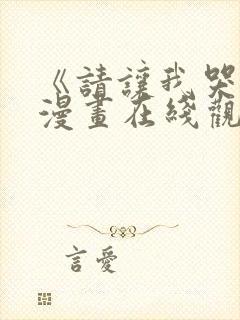 《請讓我哭
漫畫在綫觀
言愛